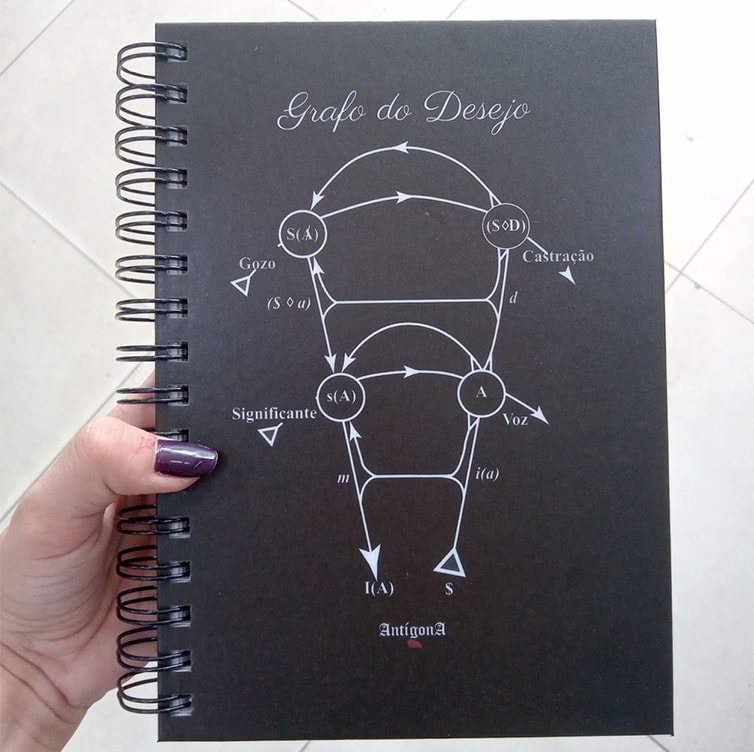 Grafo do Desejo
S(Ⱥ)
(S◊D)
Gozo
Castração
($ ◊ a)
d
s(A)
A
Significante
Voz
m
i(a)
I(A)
$
AntígonA